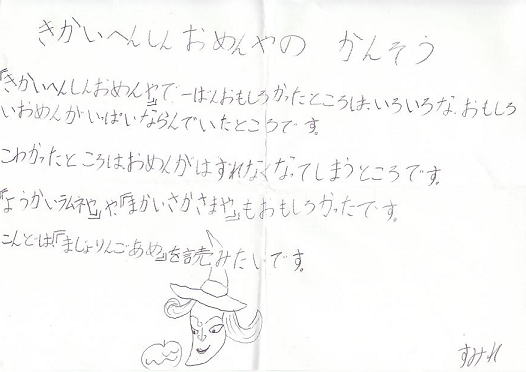 きかいへんしんおめんやの かんそう
『きかいへんしんおめんや』で一ばんおもしろかったところは、いろいろな、おもしろ
いおめんがいっぱいならんでいたところです。
こわかったところはおめんがはずれなくなってしまうところです。
『ようかいラムネや』や、『まかいさかさまや』もおもしろかったです。
こんどは『まじょりんごあめ』を読みたいです。
すみれ